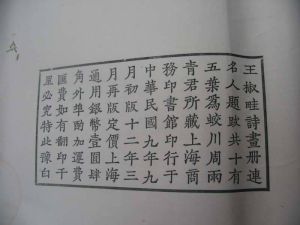 王椒畦詩畫册連
名人題跋共十有
五葉爲蛟川周雨
青君所藏上海商
務印書館印行于
中華民國九年九
月初版十二年三
月再版定價上海
通用銀幣壹圓肆
角外埠酌加運費
匯費如有翻印千
里必究特此豫白